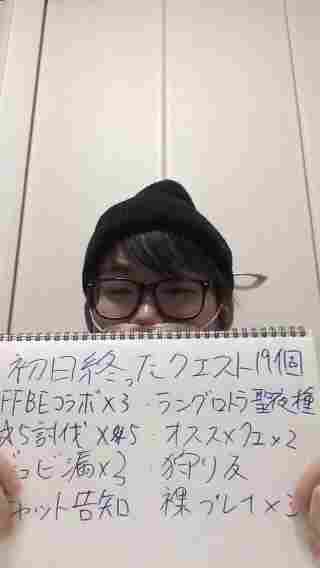 初日終ったクエスト19個
FFBEコラボ×3 ・ラングロトラ聖夜種
★5討伐×5 オススメクエ×2
ジョビ漏×3 狩り友
チャット告知 裸プレイ×3